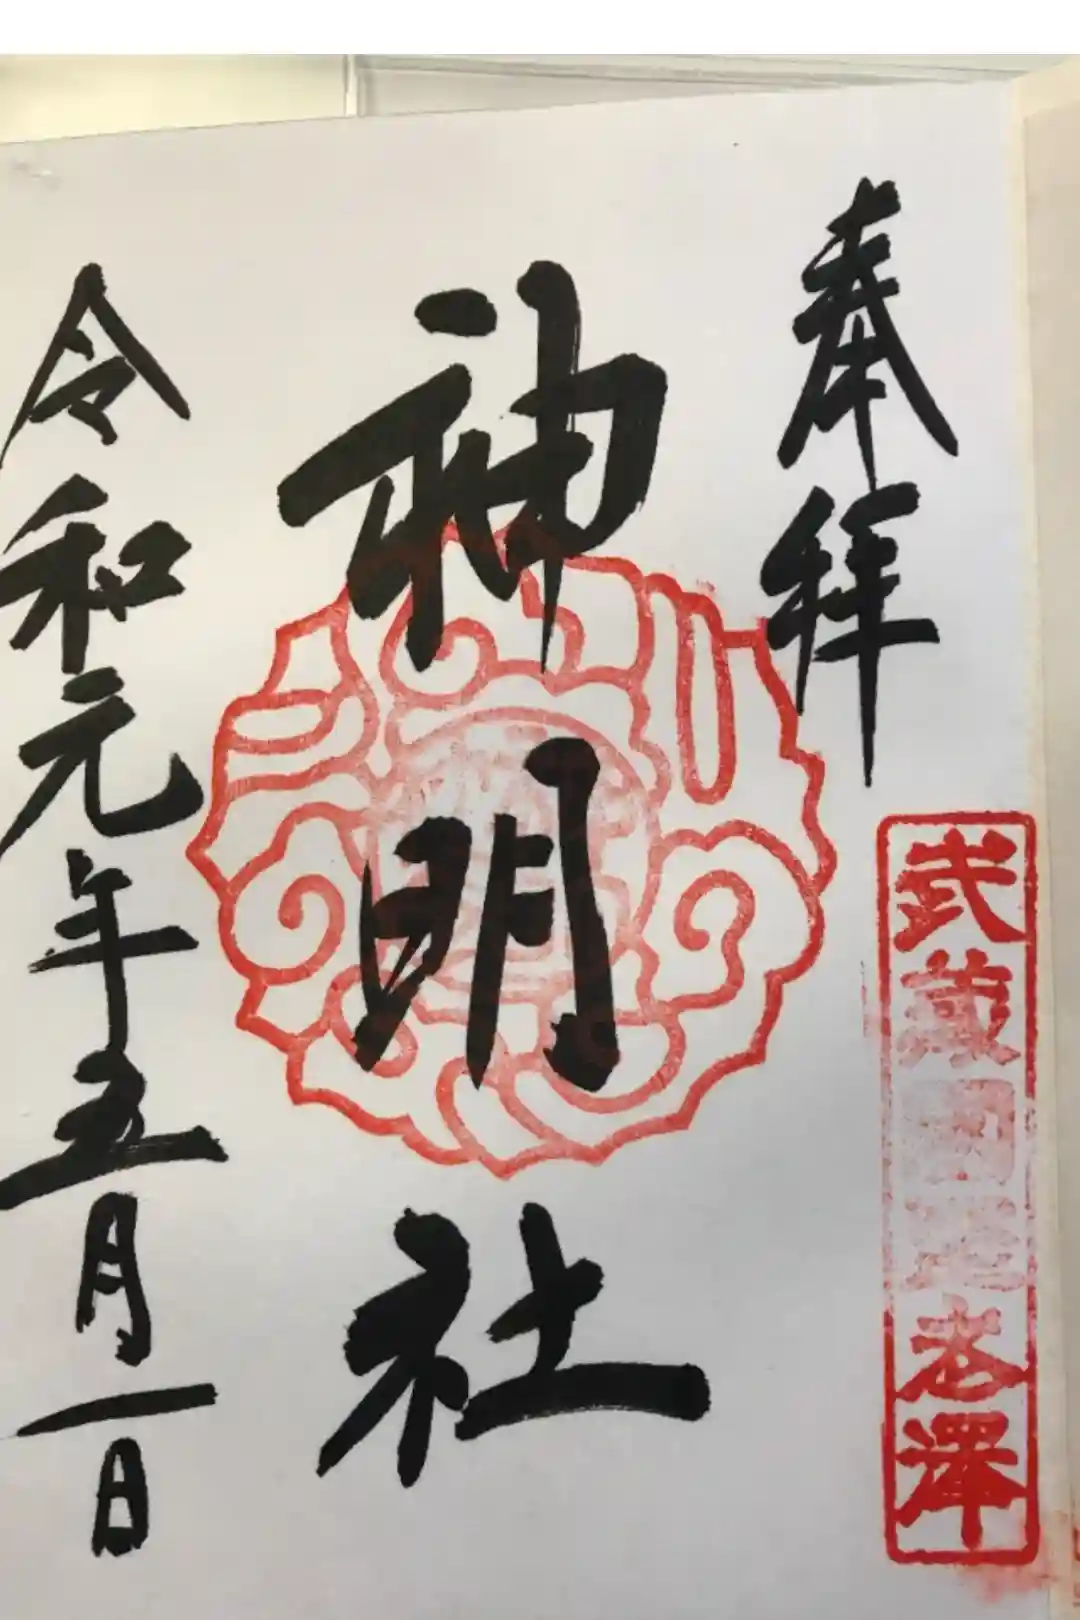 奉拝
武蔵國野老澤
神明社
令和元年五月一日